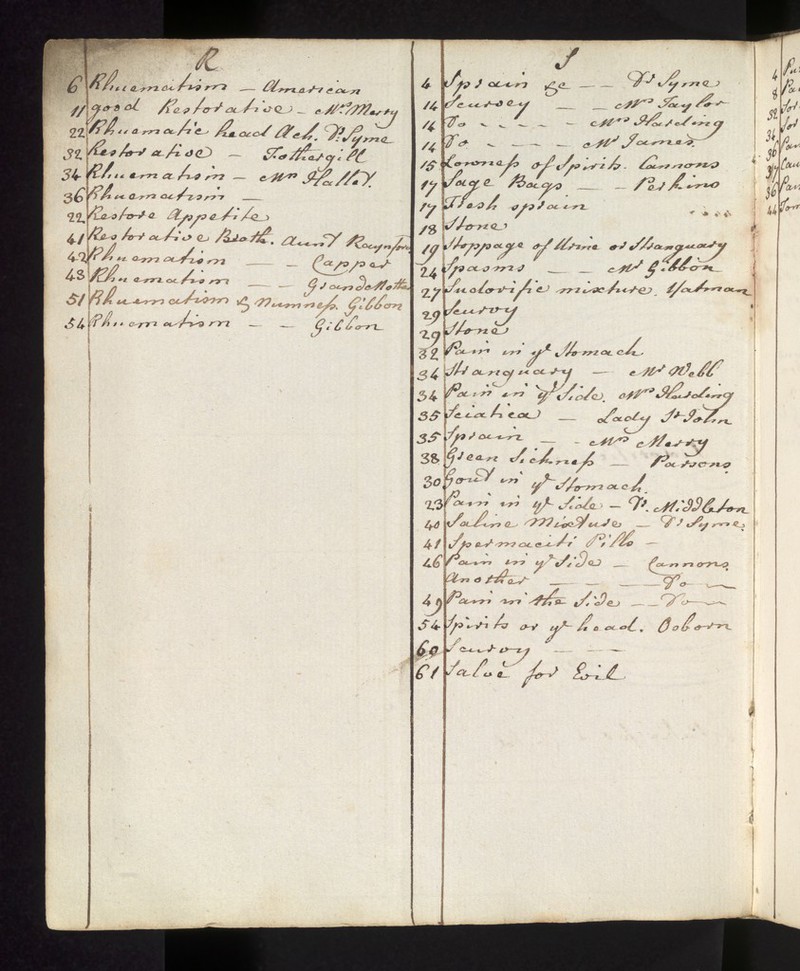 R
6 Rhuematism - American
11 good Restorative - Mrs. Merry
22 Rhuematic head Ach. Dr. Syme
32 Restorative - Fothergill
34 Rhuematism - Mrs Hallet.
36 Rhuematism -
22 Restore Appetite
41 Restorative Broth. Aunt Raynsford
42 Rhuematism - - Capper
43 Rhuematism - - Grandmother
51 Rhuematism & Numness. Gibbon
54 Rhuematism - - Gibbon
S
4 Sprain &c - - Dr Syme
14 Scurvey - - Mrs Taylor
14 Do - - - - - Mrs Harding
14 Do - - - - Mr James.
15 Lowness of Spirits. Cannons
17 Sage Bags - - Perkins
17 Flesh sprain
18 Stone
19 Stoppage of Urine or Stranguary
24 Spasms - - Mr Gibbon
27 Sudorific mixture. Yatman
29 Scurvy
29 Stone
32 Pain in ye Stomach
34 Stranguary - Mr Webb
34 Pain in ye Side. Mrs Harding
35 Sciatica - Lady St John
35 Sprain - - Mrs Merry
38 Green Sickness - Parsons
30 Gout in ye Stomach
23 Pain in ye Side - Dr. Middleton
40 Saline Mixture - Dr Syme
41 Spermaciti Pills -
46 Pain in ye Side - Cannons
Another - - Do -
49 Pain in the Side - - Do -
54 Spirits or ye head. Osborn
60 Scurvy - -
61 Salve for Evil
4
8
32
34
36
37
36
44